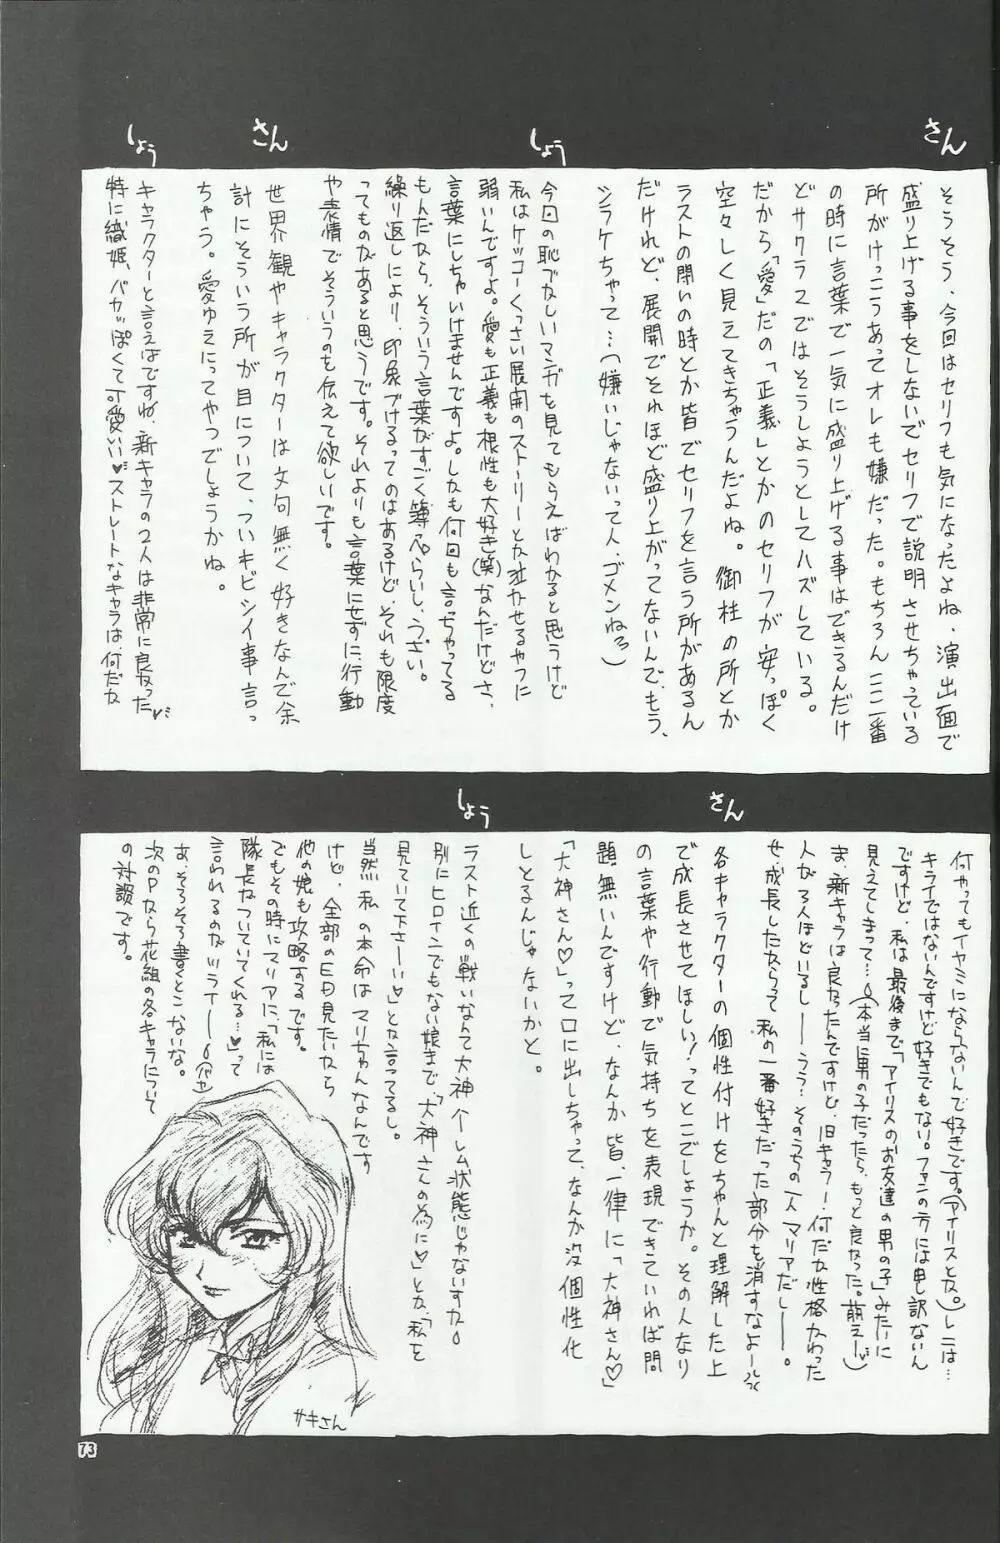 さん
そうそう、今回はセリフも気になったよね、演出面で
盛り上げる事をしないでセリフで説明させちゃっている
所がけっこうあってオレも嫌だった。もちろんここ一番
の時に言葉で一気に盛り上げる事はできるんだけ
どサクラ2ではそうしようとしてハズしている。
だから「愛」だの「正義」とかのセリフが安っぽく
空々しく見えてきちゃうんだよね。御柱の所とか
ラストの闘いの時とか皆でセリフを言う所があるん
だけれど、展開でそれほど盛り上がってないんで、もう、
シラケちゃって…(嫌いじゃないって人、ゴメンねろ)
しょう
今回の恥ずかしいマンガを見てもらえばわかると思うけど
私はケッコーくっさい展開のストーリーとか泣かせるやつに
弱いんですよ。愛も正義も根性も大好き(笑)なんだけどさ、
言葉にしちゃいけませんですよ。しかも何回も言っちゃってる
もんだから、そういう言葉がすごく薄っぺらいし、うざい。
繰り返しにより、印象づけるってのはあるけど、それも限度
ってものがあると思うです。それよりも言葉にせずに、行動
や表情でそういうのも伝えて欲しいです。
さん
世界観やキャラクターは文句無く好きなんで余
計にそういう所が目について、ついキビシイ事言っ
ちゃう。愛ゆえにってやつでしょうかね。
しょう
キャラクターと言えばですね、新キャラの2人は非常に良かった♥
特に織姫、バカっぽくて可愛い♥ストレートなキャラは、何だか
何やってもイヤミにならないんで好きです。(アイリスとか。)レニは…
キライではないんですけど好きでもない。ファンの方には申し訳ないん
ですけど、私は最後まで「アイリスのお友達の男の子」みたいに
見えてしまって…(本当に男の子だったら、もっと良かった。萌えー♥)
ま、新キャラは良かったんですけど、旧キャラー、何だか性格かわった
人が3人ほどいるしーーうう…そのうちの一人マリアだしーー。
せ、成長したからって私の一番好きだった部分を消すなよーー
さん
各キャラクターの個性付けをちゃんと理解した上
で成長させてほしい!ってとこでしょうか。その人なり
の言葉や行動で気持ちを表現できていれば問
題無いんですけど、なんか皆、一律に「大神さん♡」
「大神さん♡」って口に出しちゃって、なんか没個性化
しとるんじゃないかと。
しょう
ラスト近くの戦いなんて大神ハーレム状態じゃないすか。
別にヒロインでもない娘まで、「大神さんの為に♡」とか、「私を
見ていて下さーい♡」とか言ってるし。
当然、私の本命はマリアちゃんなんです
けど、全部のED見たいなら
他の娘も攻略するです。
でもその時にマリアに、「私には
隊長がついていてくれる…♥」って
言われるのがツライーー
あ、そろそろ書くとこないな。
次のPからは花組の各キャラについて
の対談です。
サキさん
73